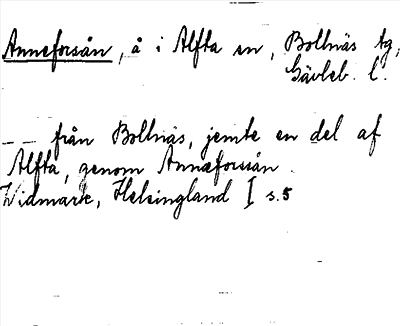 Anneforsån, å i Alfta sn, Bollnäs tg,
Gävleb. l.
-- från Bollnäs, jemte en del af
Alfta, genom Anneforssån.
Widmark, Helsingland I s. 5